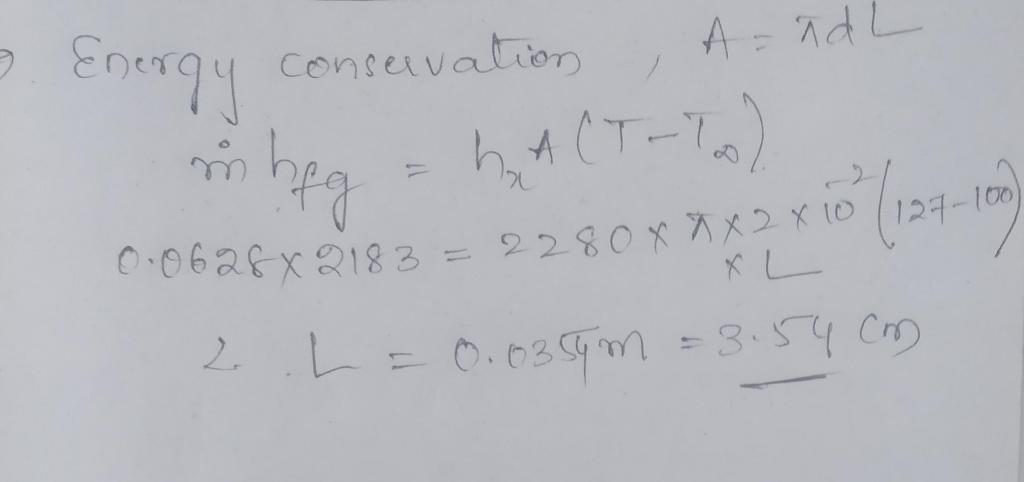 Energy conservation , A = πdL
ṁ hfg = hx A (T-T∞)
0.0628 x 2183 = 2280 x π x 2 x 10^-2 (127-100)
x L
L = 0.0354m = 3.54 cm